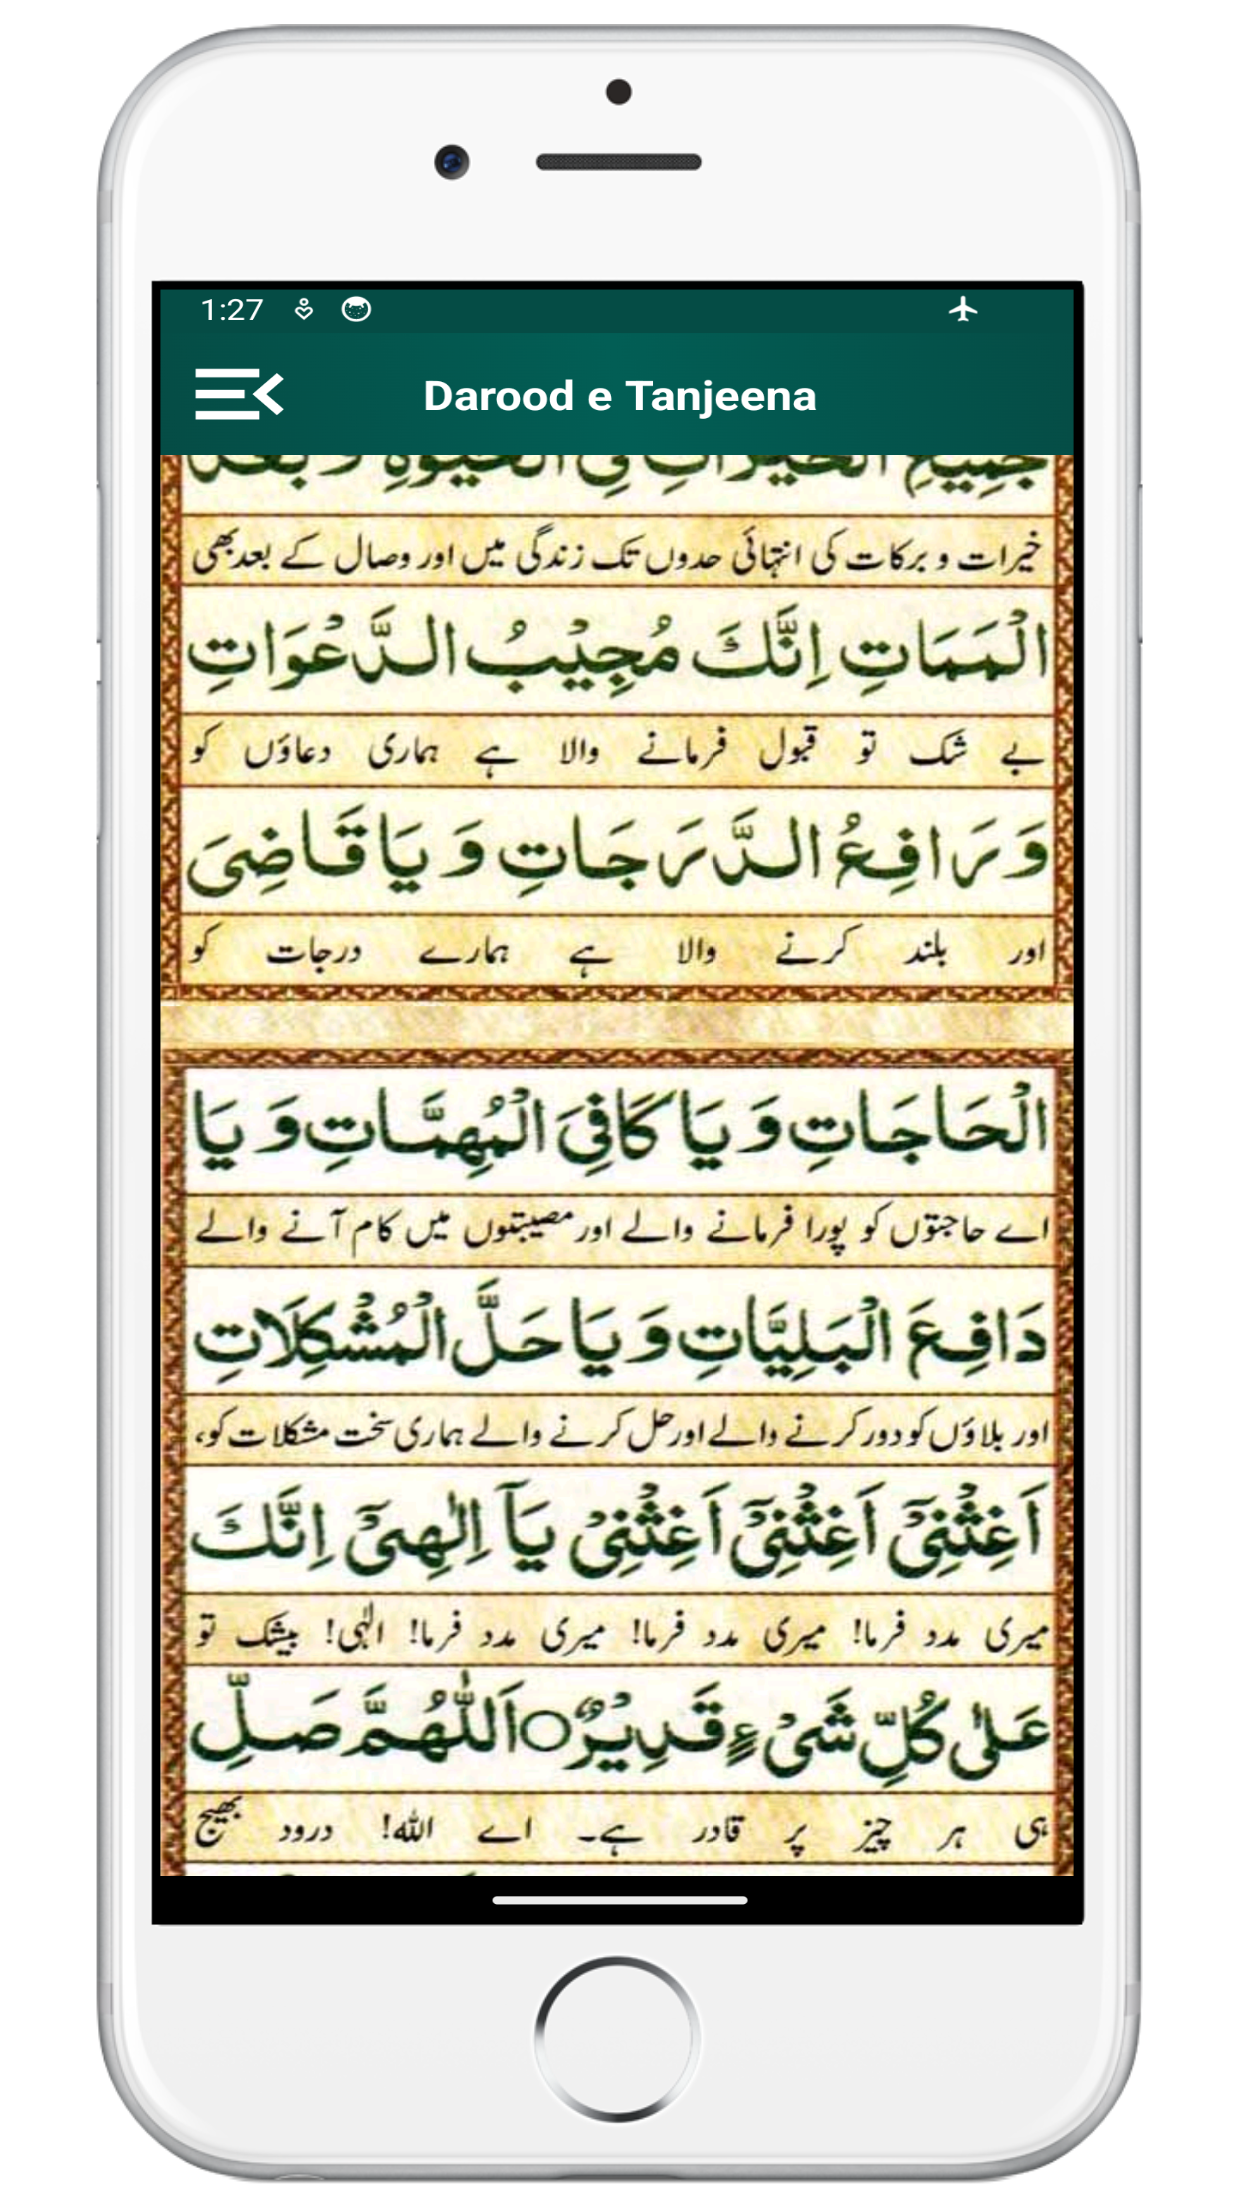 1:27
Darood e Tanjeena
جَمِيْعِ الْخَيْرَاتِ فِي الْحَيٰوةِ وَبَعْدَ
خیرات و برکات کی انتہائی حدوں تک زندگی میں اور وصال کے بعد بھی
الْمَمَاتِ اِنَّكَ مُجِيْبُ الدَّعْوَاتِ
بے شک تو قبول فرمانے والا ہے ہماری دعاؤں کو
وَرَافِعُ الدَّرَجَاتِ وَيَا قَاضِىَ
اور بلند کرنے والا ہے ہمارے درجات کو
الْحَاجَاتِ وَيَا كَافِىَ الْمُهِمَّاتِ وَيَا
اے حاجتوں کو پورا فرمانے والے اور مصیبتوں میں کام آنے والے
دَافِعَ الْبَلِيَّاتِ وَيَا حَلَّ الْمُشْكِلَاتِ
اور بلاؤں کو دور کرنے والے اور حل کرنے والے ہماری سخت مشکلات کو،
اَغِثْنِىْٓ اَغِثْنِىْٓ اَغِثْنِىْ يَآ اِلٰهِىْٓ اِنَّكَ
میری مدد فرما! میری مدد فرما! میری مدد فرما! الٰہی! بیشک تو
عَلٰى كُلِّ شَىْءٍ قَدِيْرٌ○اَللّٰهُمَّ صَلِّ
ہی ہر چیز پر قادر ہے۔ اے اللہ! درود بھیج